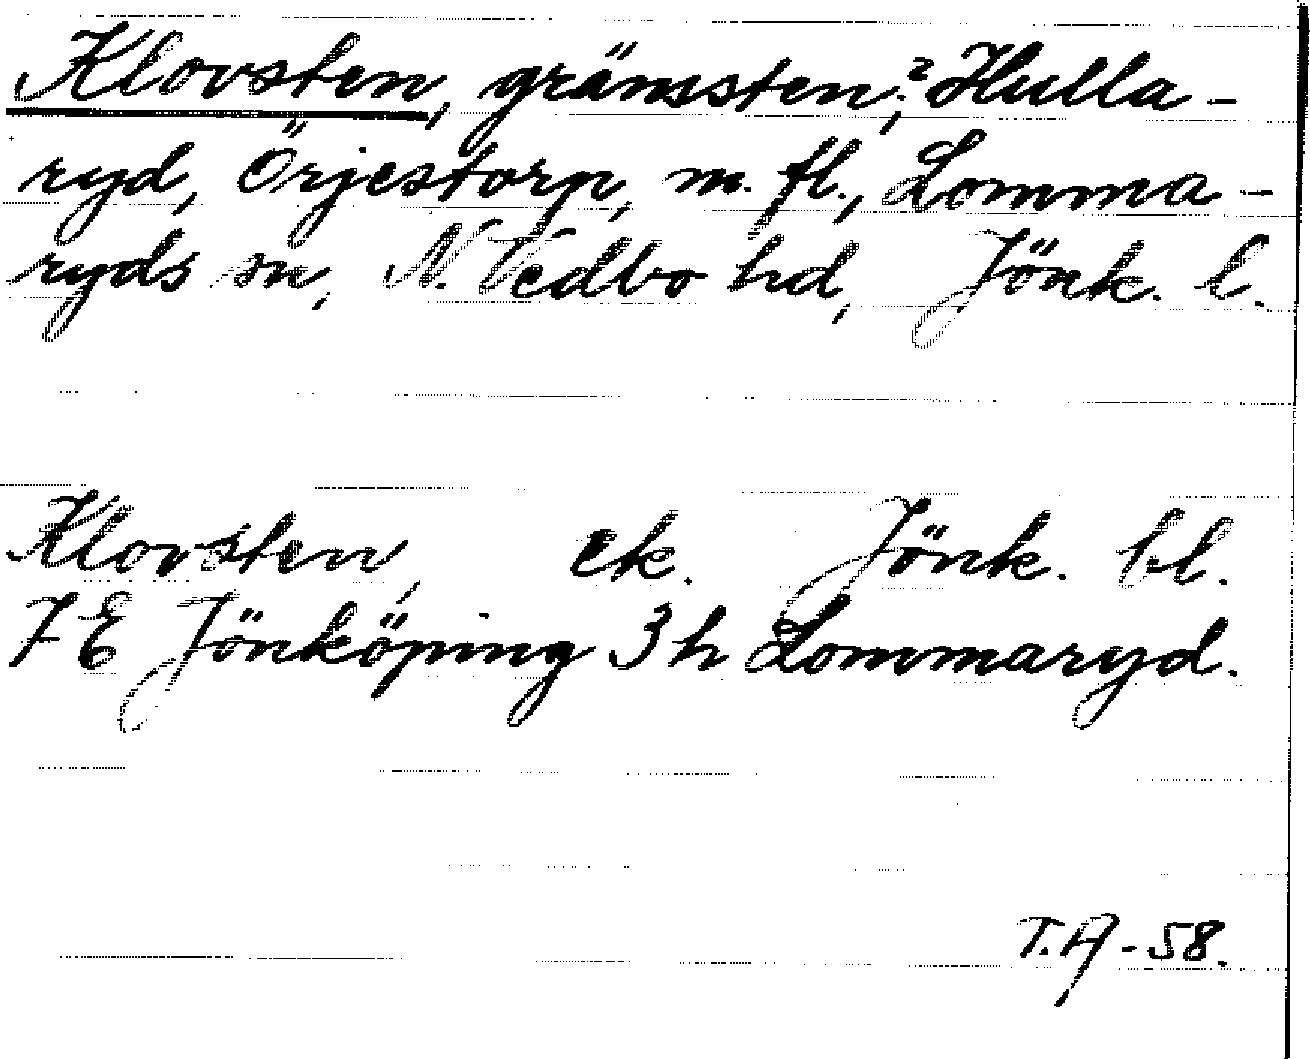 Klovsten, gränssten?, Hulla-
ryd, Örjestorp, m. fl., Lomma-
ryds sn, N. Vedbo hd, Jönk. l.
Klovsten, ek. Jönk. bl.
7E Jönköping 3h Lommaryd.
T.A-58.